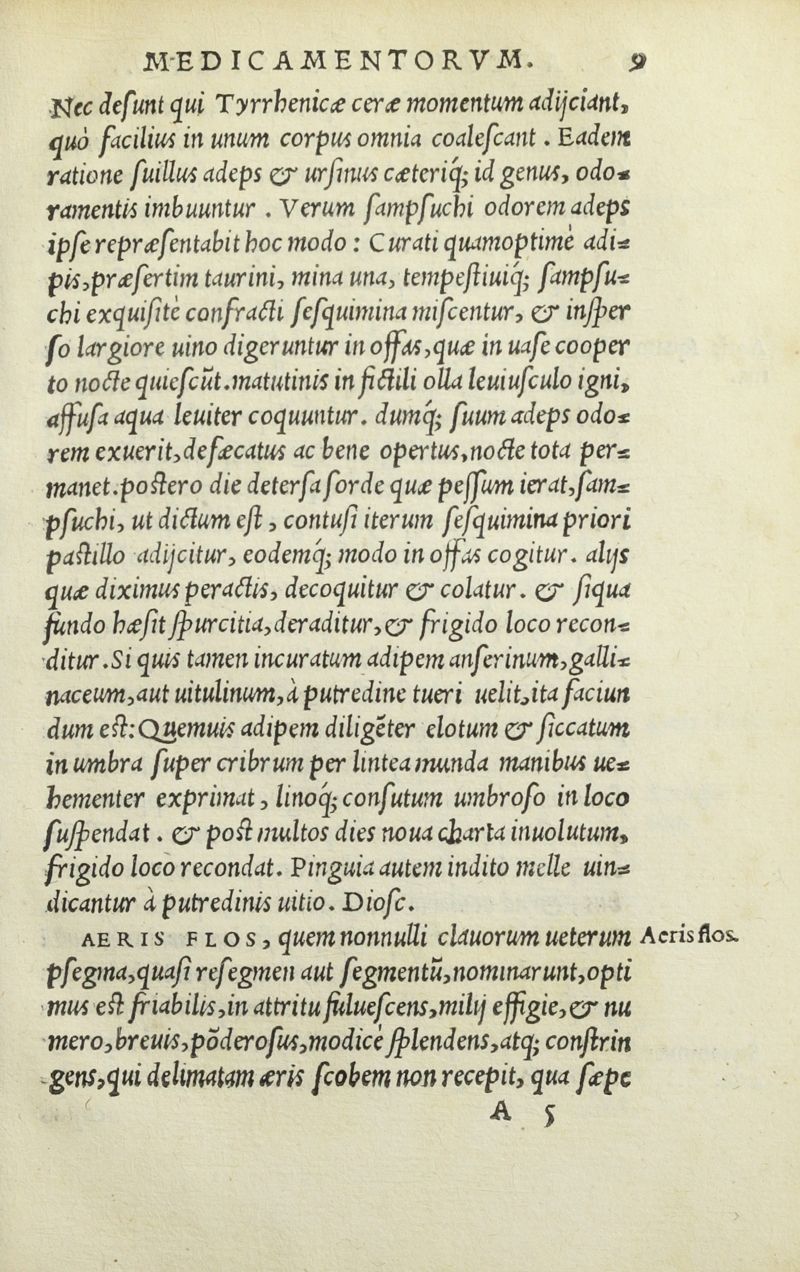 MEDICAMENTORVM. 9
Nec deſunt qui Tyrrhenicæ ceræ momentum adijciant,
quò facilius in unum corpus omnia coaleſcant. Eadem
ratione ſuillus adeps & urſinus cæteriq́; id genus, odo-
ramentis imbuuntur. Verum ſampſuchi odorem adeps
ipſe repræſentabit hoc modo: Curati quamoptimè adi-
pis, præſertim taurini, mina una, tempeſtiuiq́; ſampſu-
chi exquiſitè confracti ſeſquimina miſcentur, & inſper
ſo largiore uino digeruntur in offas, quæ in uaſe cooper
to nocte quieſcūt. matutinis in fictili olla leuiuſculo igni,
affuſa aqua leuiter coquuntur. dumq́; ſuum adeps odo-
rem exuerit, defæcatus ac bene opertus, nocte tota per-
manet. poſtero die deterſa ſorde quæ peſſum ierat, ſam-
pſuchi, ut dictum eſt, contuſi iterum ſeſquimina priori
paſtillo adijcitur, eodemq́; modo in offas cogitur. alijs
quæ diximus peractis, decoquitur & colatur. & ſiqua
fundo hæſit ſpurcitia, deraditur, & frigido loco recon-
ditur. Si quis tamen incuratum adipem anſerinum, galli-
naceum, aut uitulinum, à putredine tueri uelit, ita faciun
dum eſt: Quemuis adipem diligēter elotum & ſiccatum
in umbra ſuper cribrum per lintea munda manibus ue-
hementer exprimat, linoq́; conſutum umbroſo in loco
ſuſpendat. & poſt multos dies noua charta inuolutum,
frigido loco recondat. Pinguia autem indito melle uin-
dicantur à putredinis uitio. Dioſc.
AERIS FLOS, quem nonnulli clauorum ueterum Aeris flos.
pſegma, quaſi reſegmen aut ſegmentū, nominarunt, opti
mus eſt friabilis, in attritu fulueſcens, milij effigie, & nu
mero, breuis, pōderoſus, modicè ſplendens, atq; conſtrin
gens, qui delimatam æris ſcobem non recepit, qua ſæpe
A 5